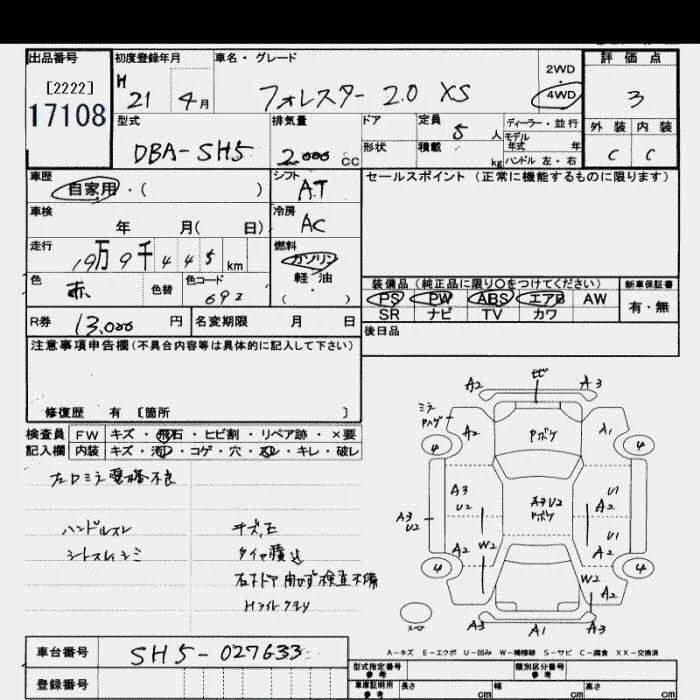 出品番号 初度登録年月 車名・グレード 2WD 評価点
[2222] H 21 4月 フォレスター 2.0 XS 4WD 3
17108
型式 排気量 ドア 定員 5 人 ディーラー・並行 外装 内装
DBA-SH5 2,000 cc 形状 積載 kg モデル年式 年 C C
ハンドル 左・右
車歴 シフト セールスポイント (正常に機能するものに限ります)
自家用・( ) AT
車検 冷房
年 月( 日) AC
走行 燃料
19万9千445 km ガソリン
色 色替 色コード 軽・油
赤 692 ( )
装備品 (純正品に限り○をつけてください) 新車保証書
PS PW ABS エアB AW 有・無
SR ナビ TV カワ
R券 13,000 円 名変期限 月 日
後日品
注意事項申告欄(不具合内容等は具体的に記入して下さい)
修復歴 有 [箇所 ]
検査員 FW キズ・飛石・ヒビ割・リペア跡・×要
記入欄 内装 キズ・汚れ・コゲ・穴・・キレ・破レ
ハンドルスレ
タイヤ積込
Hライトクモリ
A2 A3
A2 Pボケ A1
4 4
A3 U2 A3 U2 Pボケ U1 A2
A3 U2 U1
A2 W2 A2
4 W2 4
A2
スペア A3 A1 A3
A-キズ E-エクボ U-凹み W-補修跡 S-サビ C-腐食 XX-交換済
車台番号 SH5-027633
登録番号
型式指定番号 参考 類別区分番号 参考
車庫証明用 参考 長さ cm 幅 cm 高さ cm